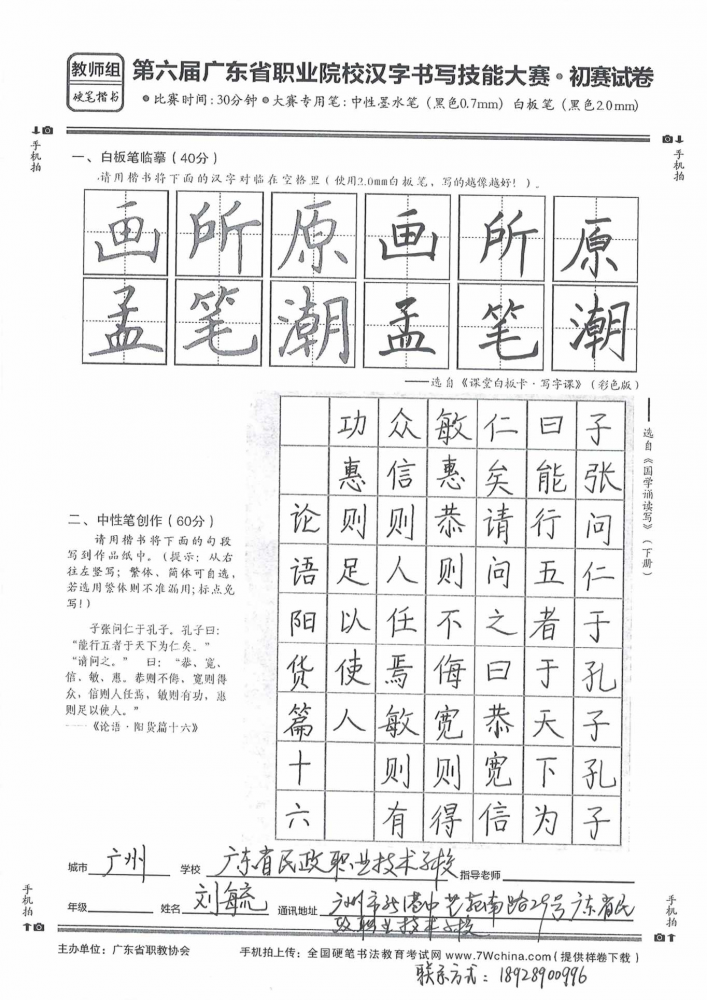 教师组
硬笔楷书
第六届广东省职业院校汉字书写技能大赛·初赛试卷
比赛时间:30分钟 大赛专用笔:中性墨水笔(黑色0.7mm) 白板笔(黑色2.0mm)
手机拍
手机拍
一、白板笔临摹(40分)
请用楷书将下面的汉字对临在空格里(使用2.0mm白板笔,写的越像越好!)。
画所原画所原
孟笔潮孟笔潮
——选自《课堂白板卡·写字课》(彩色版)
二、中性笔创作(60分)
请用楷书将下面的句段
写到作品纸中。(提示:从右
往左竖写;繁体、简体可自选,
若选用繁体则不准漏用;标点免
写!)
子张问仁于孔子。孔子曰:
“能行五者于天下为仁矣。”
“请问之。” 曰:“恭、宽、
信、敏、惠。恭则不侮,宽则得
众,信则人任焉,敏则有功,惠
则足以使人。”
——《论语·阳货篇十六》
子张问仁于孔子孔子
曰能行五者于天下为
仁矣请问之曰恭宽信
敏惠恭则不侮宽则得
众信则人任焉敏则有
功惠则足以使人
论语阳货篇十六
——选自《国学诵读写》(下册)
城市 广州 学校 广东省民政职业技术学校 指导老师
年级 姓名 刘毓 通讯地址 广州市 南路29号广东省民
政职业技术学校
手机拍
手机拍
主办单位:广东省职教协会 手机拍上传:全国硬笔书法教育考试网 www.7Wchina.com(提供样卷下载)
联系方式:18928900996